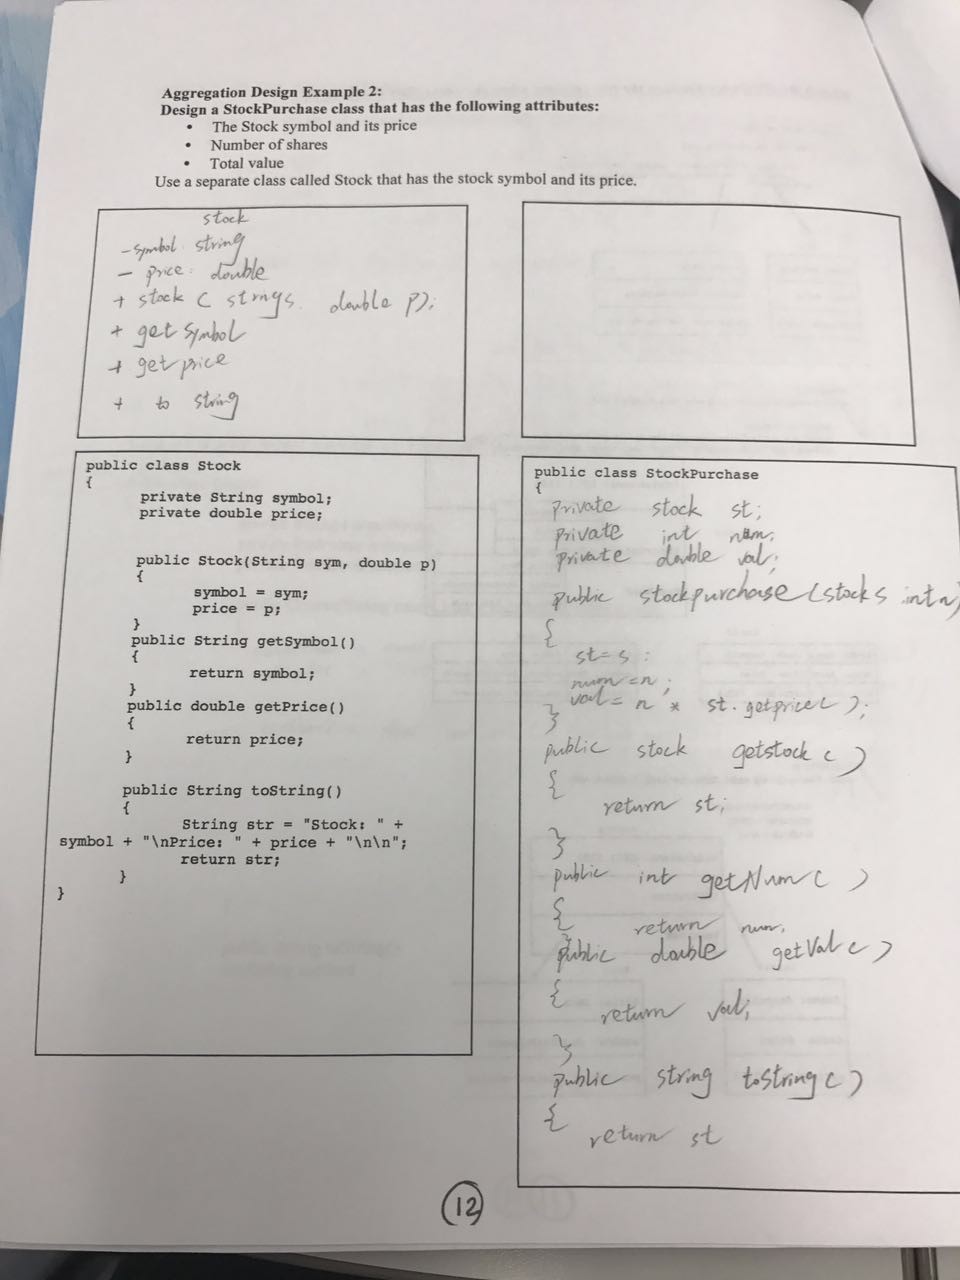 Aggregation Design Example 2:
Design a StockPurchase class that has the following attributes:
• The Stock symbol and its price
• Number of shares
• Total value
Use a separate class called Stock that has the stock symbol and its price.
stock
- symbol: string
- price: double
+ stock ( string s, double p);
+ get Symbol
+ get price
+ to string
public class Stock
{
private String symbol;
private double price;
public Stock(String sym, double p)
{
symbol = sym;
price = p;
}
public String getSymbol()
{
return symbol;
}
public double getPrice()
{
return price;
}
public String toString()
{
String str = "Stock: " +
symbol + "\nPrice: " + price + "\n\n";
return str;
}
}
public class StockPurchase
{
private stock st;
private int num;
private double val;
public stockpurchase (stock s int n)
{
st = s;
num = n;
val = n * st.getprice();
}
public stock getstock ()
{
return st;
}
public int getNum ()
{
return num;
}
public double getVal ()
{
return val;
}
public string tostring ()
{
return st
12